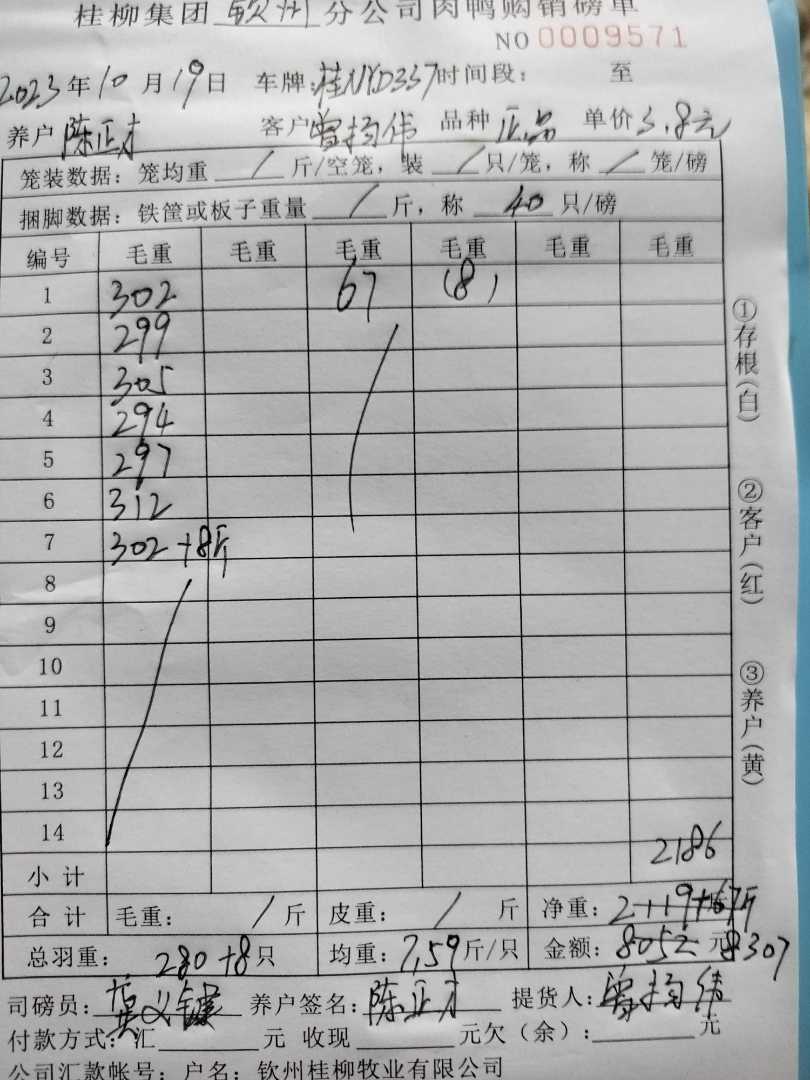 桂柳集团 钦州 分公司肉鸭购销磅单
NO 0009571
2023年10月19日 车牌:桂NYD337 时间段: 至
养户 陈正才 客户 曾扬伟 品种 正品 单价 3.8元
笼装数据: 笼均重 / 斤/空笼, 装 / 只/笼, 称 / 笼/磅
捆脚数据: 铁筐或板子重量 / 斤, 称 40 只/磅
编号 毛重 毛重 毛重 毛重 毛重 毛重
1 302 67 (8)
2 299
3 305
4 294
5 297
6 312
7 302+8斤
8
9
10
11
12
13
14
小计 2186
合计 毛重: / 斤 皮重: / 斤 净重: 2119+67斤
总羽重: 280+8只 均重: 7.59斤/只 金额: 8052元 8307
司磅员: 养户签名: 陈正才 提货人: 曾扬伟
付款方式: 汇 元 收现 元欠(余): 元
公司汇款帐号: 户名: 钦州桂柳牧业有限公司
①存根(白)
②客户(红)
③养户(黄)